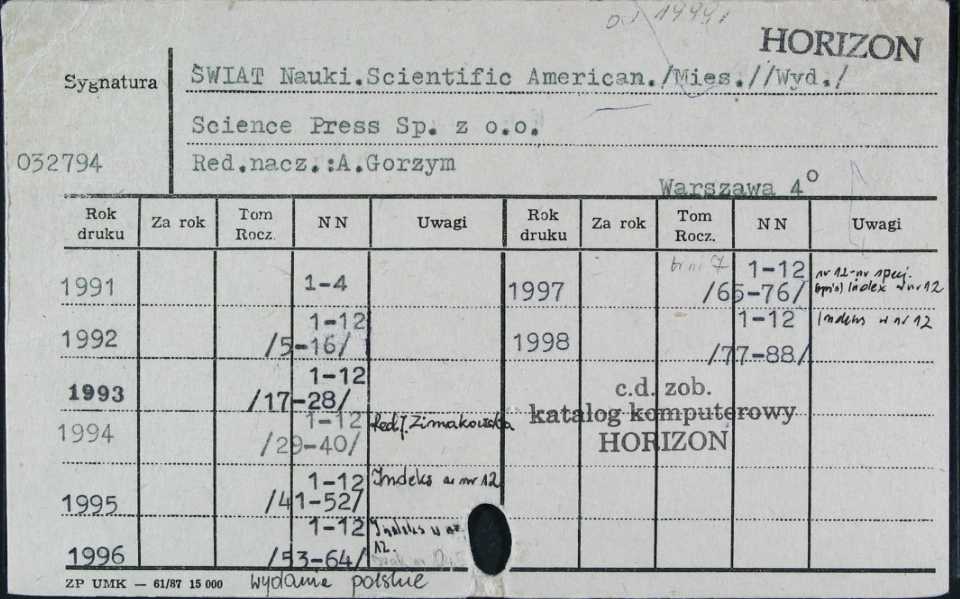 od 1999r
HORIZON
Sygnatura
ŚWIAT Nauki.Scientific American./Mies.//Wyd./
Science Press Sp. z o.o.
032794
Red.nacz.:A.Gorzym
Warszawa 4°
Rok druku Za rok Tom Rocz. NN Uwagi Rok druku Za rok Tom Rocz. NN Uwagi
1991 1-4
1992 1-12 /5-16/
1993 1-12 /17-28/
1994 1-12 /29-40/ Red.J.Zimakowska
1995 1-12 /41-52/ Indeks w nr 12
1996 1-12 /53-64/ Indeks w nr 12.
1997 br nr 7 1-12 /65-76/ nr 12-nr specj. Index w nr 12
1998 1-12 /77-88/ Indeks w nr 12
c.d. zob.
katalog komputerowy
HORIZON
ZP UMK — 61/87 15 000 wydanie polskie